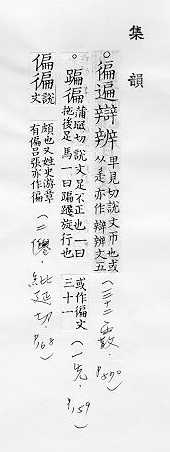 集韻
。徧遍辯辨 卑見切說文帀也或
从辵亦作辯辨文五
(三十二霰. P.570)
。蹁徧 蒲眠切說文足不正也一曰
拖後足馬一曰蹁躚旋行也
或作徧文
三十一
(一先. P.159)
偏徧 說文
頗也又姓史游章
有偏呂張亦作徧
(二僊. 紕延切. P.168)